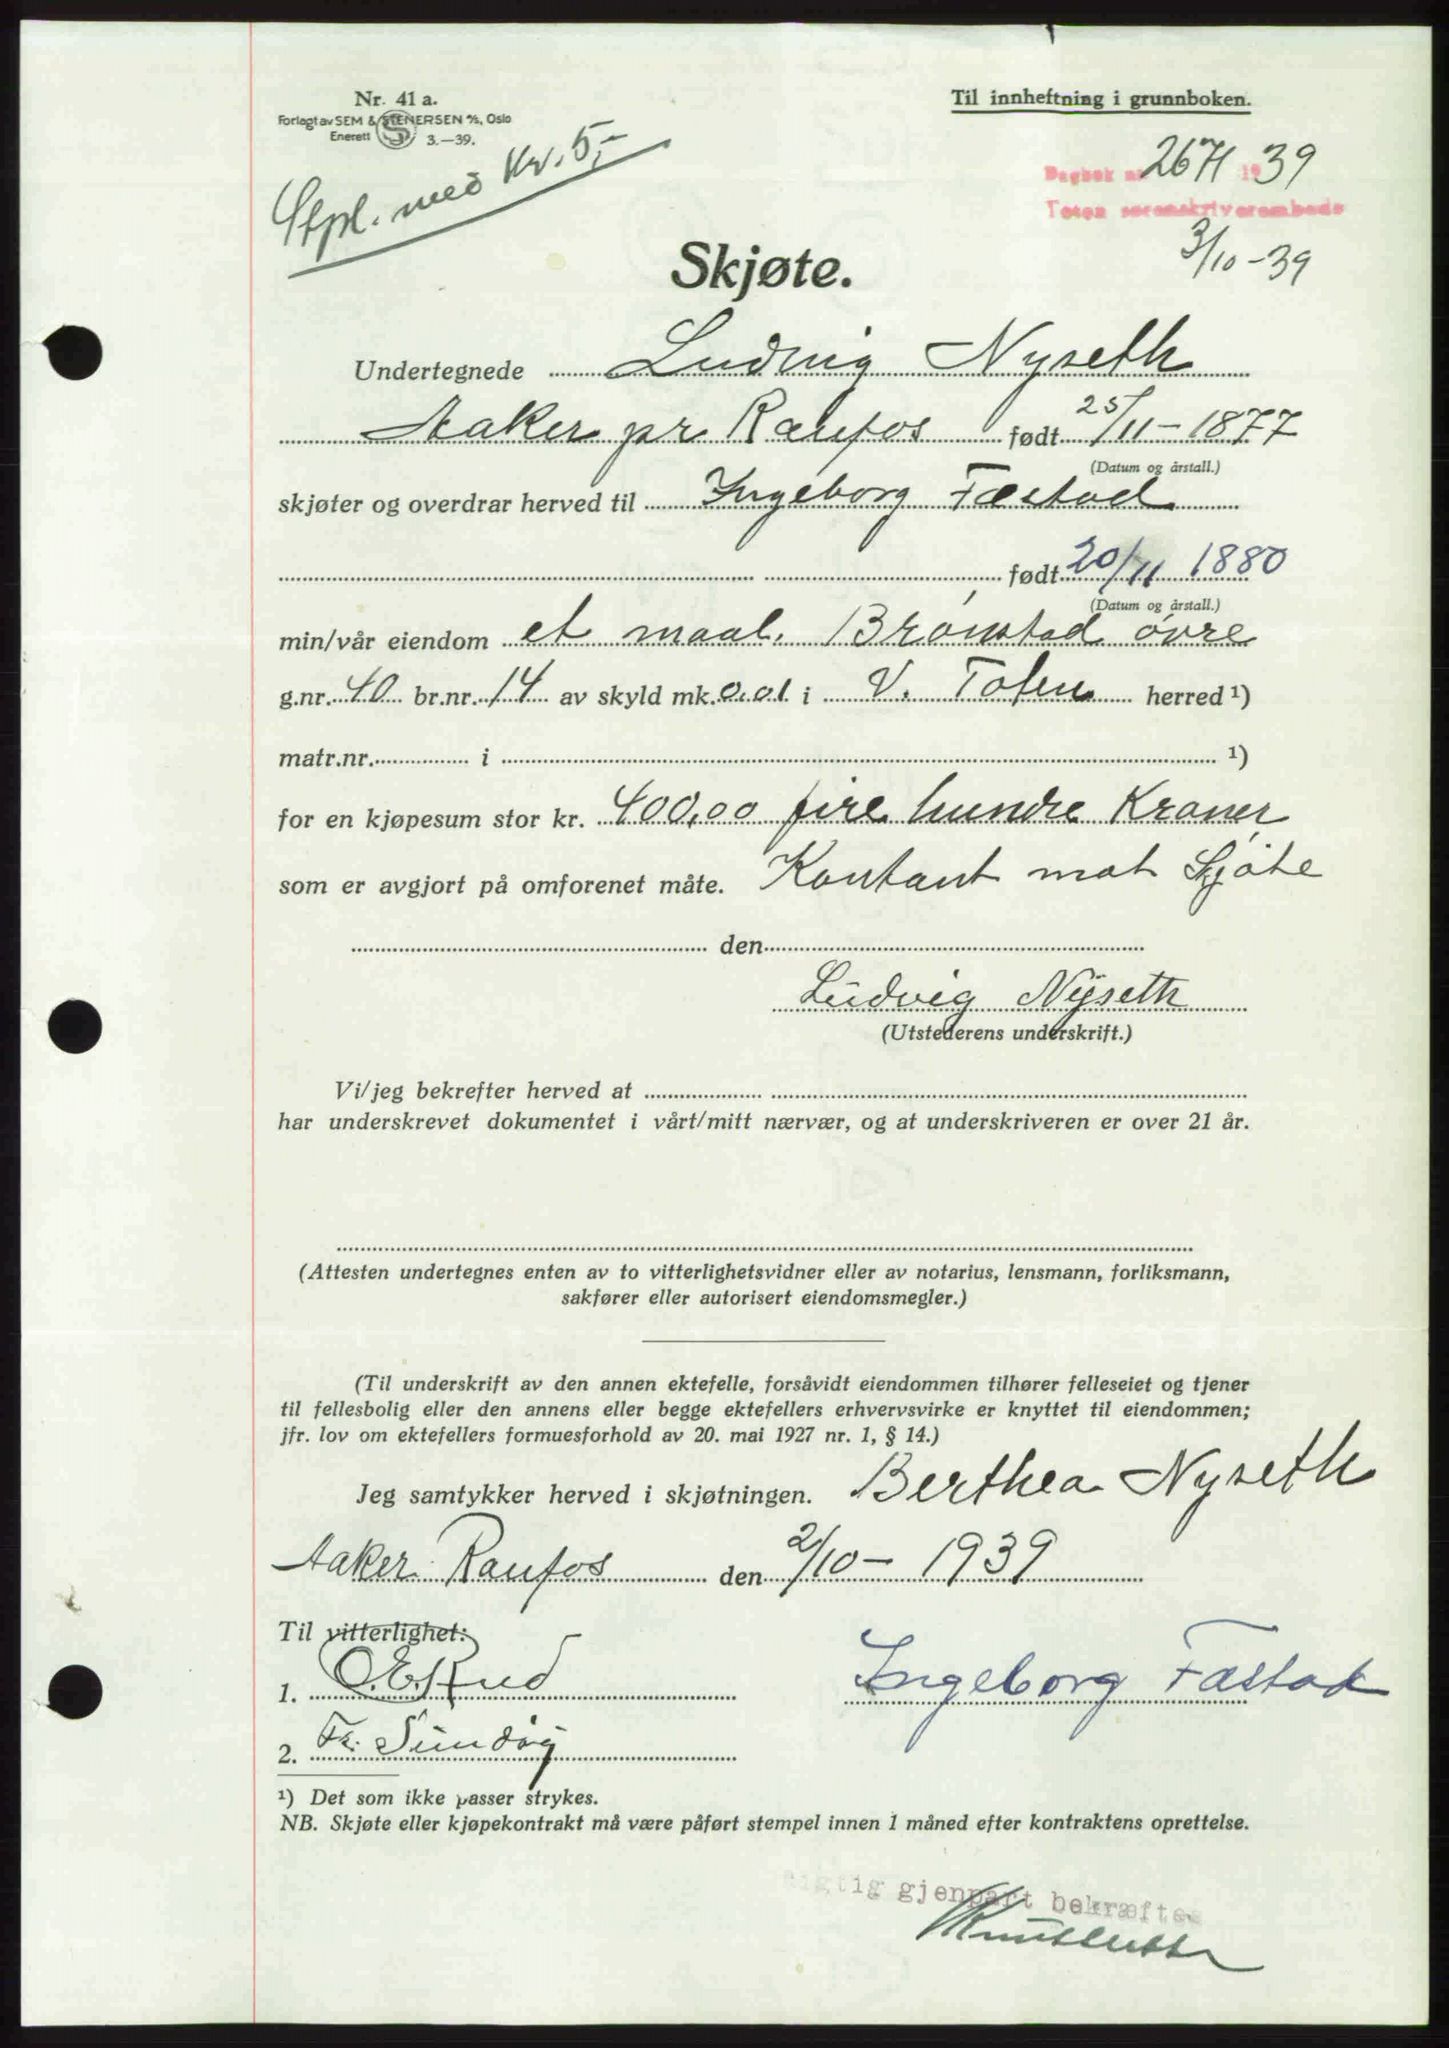 Nr. 41 a.
Forlagt av SEM & STENERSEN A/S, Oslo
Enerett S 3.—39.
Til innheftning i grunnboken.
Stpl. med kr. 5,-
Dagbok nr. 2671 1939
Toten sorenskriverembede
3/10-39
Skjøte.
Undertegnede Ludvig Nyseth
Aaker pr Raufos født 25/11-1877
(Datum og årstall.)
skjøter og overdrar herved til Ingeborg Fæstad
født 20/11 1880
(Datum og årstall.)
min/vår eiendom et maal. Brønstad øvre
g.nr. 40 br.nr. 14 av skyld mk. 0.01 i V. Toten herred ¹)
matr.nr. i ¹)
for en kjøpesum stor kr. 400,00 fire hundre Kroner
som er avgjort på omforenet måte. Kontant mot Skjøte
den
Ludvig Nyseth
(Utstederens underskrift.)
Vi/jeg bekrefter herved at
har underskrevet dokumentet i vårt/mitt nærvær, og at underskriveren er over 21 år.
(Attesten undertegnes enten av to vitterlighetsvidner eller av notarius, lensmann, forliksmann,
sakfører eller autorisert eiendomsmegler.)
(Til underskrift av den annen ektefelle, forsåvidt eiendommen tilhører felleseiet og tjener
til fellesbolig eller den annens eller begge ektefellers erhvervsvirke er knyttet til eiendommen;
jfr. lov om ektefellers formuesforhold av 20. mai 1927 nr. 1, § 14.)
Jeg samtykker herved i skjøtningen. Berthea Nyseth
Aaker Raufos den 2/10-1939
Til vitterlighet:
1. O.E. Rud Ingeborg Fæstad
2. Fr.
¹) Det som ikke passer strykes.
NB. Skjøte eller kjøpekontrakt må være påført stempel innen 1 måned efter kontraktens oprettelse.
Rigtig gjenpart bekræftes